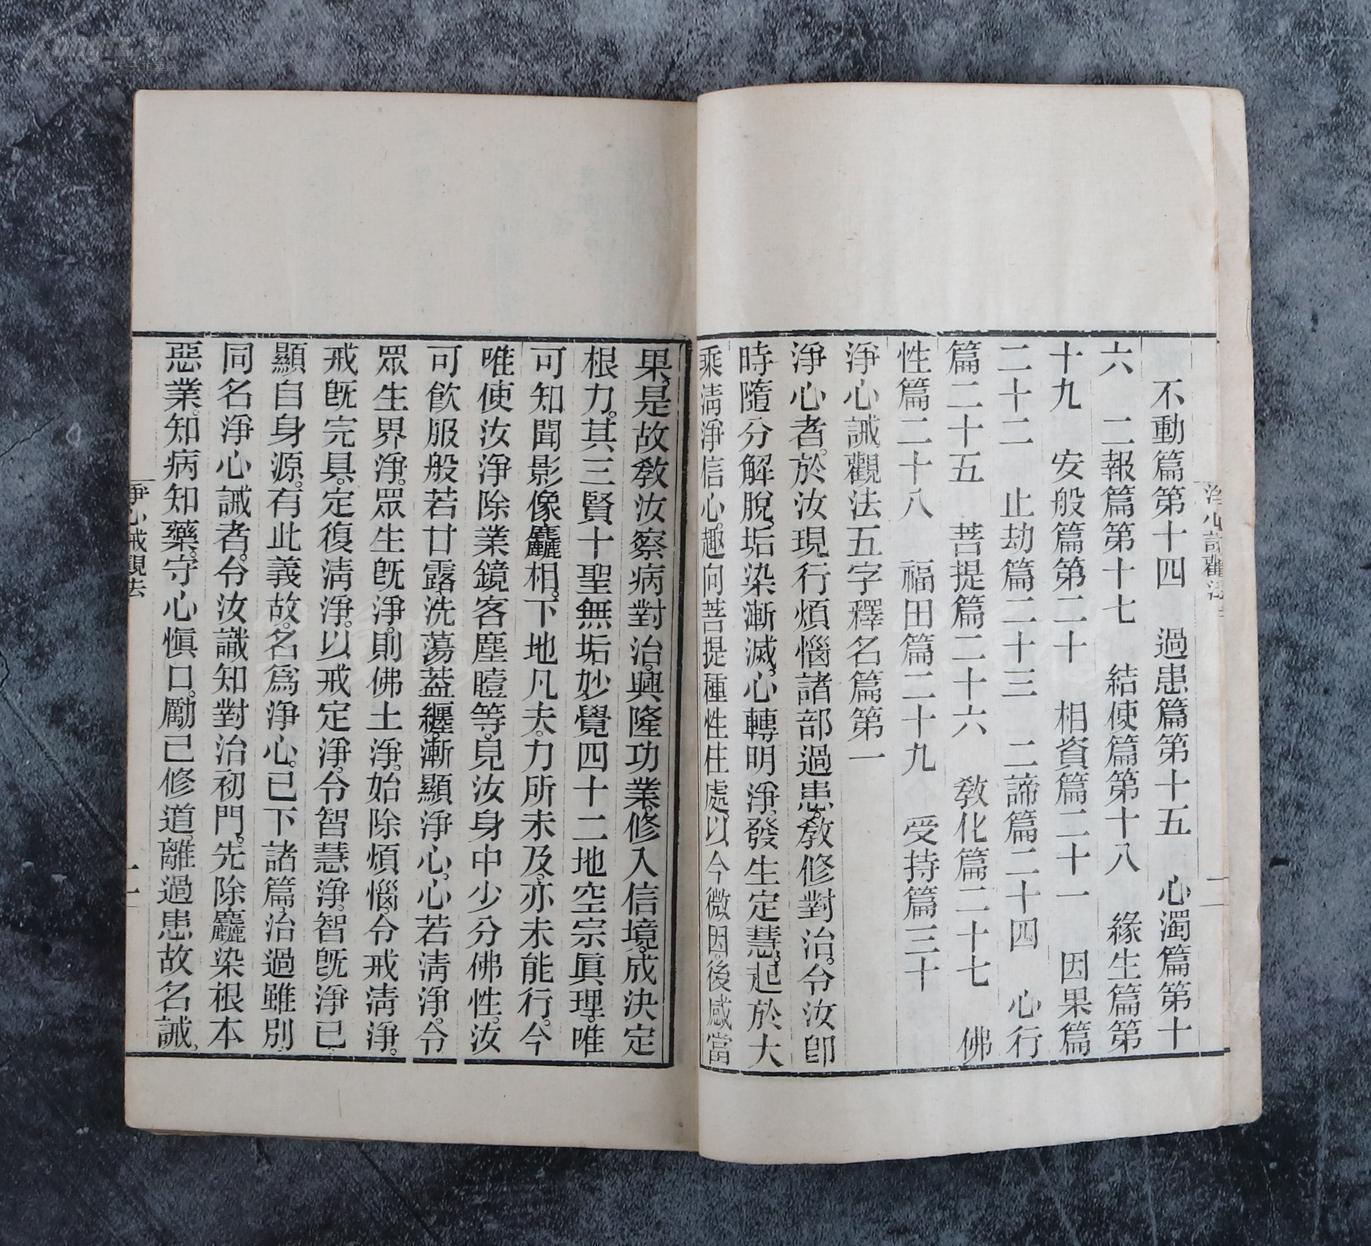 不動篇第十四　過患篇第十五　心濁篇第十
六　二報篇第十七　結使篇第十八　緣生篇第
十九　安般篇第二十　相資篇二十一　因果篇
二十二　止劫篇二十三　二諦篇二十四　心行
篇二十五　菩提篇二十六　敎化篇二十七　佛
性篇二十八　福田篇二十九　受持篇三十
淨心誡觀法五字釋名篇第一
淨心者。於汝現行煩惱諸部過患。敎修對治。令汝卽
時隨分解脫。垢染漸滅。心轉明淨。發生定慧。起於大
乘淸淨信心。趣向菩提種性住處。以今微因。後感當
果。是故敎汝察病對治。興隆功業。修入信境。成決定
根力。其三賢十聖無垢妙覺四十二地空宗眞理。唯
可知聞影像麤相。下地凡夫。力所未及。亦未能行。今
唯使汝淨除業鏡客塵曀等。見汝身中少分佛性。汝
可飮服般若甘露洗蕩蓋纏。漸顯淨心。心若淸淨。令
眾生界淨。眾生旣淨。則佛土淨。始除煩惱令戒淸淨。
戒旣完具。定復淸淨。以戒定淨。令智慧淨。智旣淨已
顯自身源。有此義故。名爲淨心。已下諸篇治過雖別
同名淨心誡者。令汝識知對治初門。先除麤染根本
惡業。知病知藥。守心愼口。勵己修道。離過患故名誡。
淨心誡觀法
二